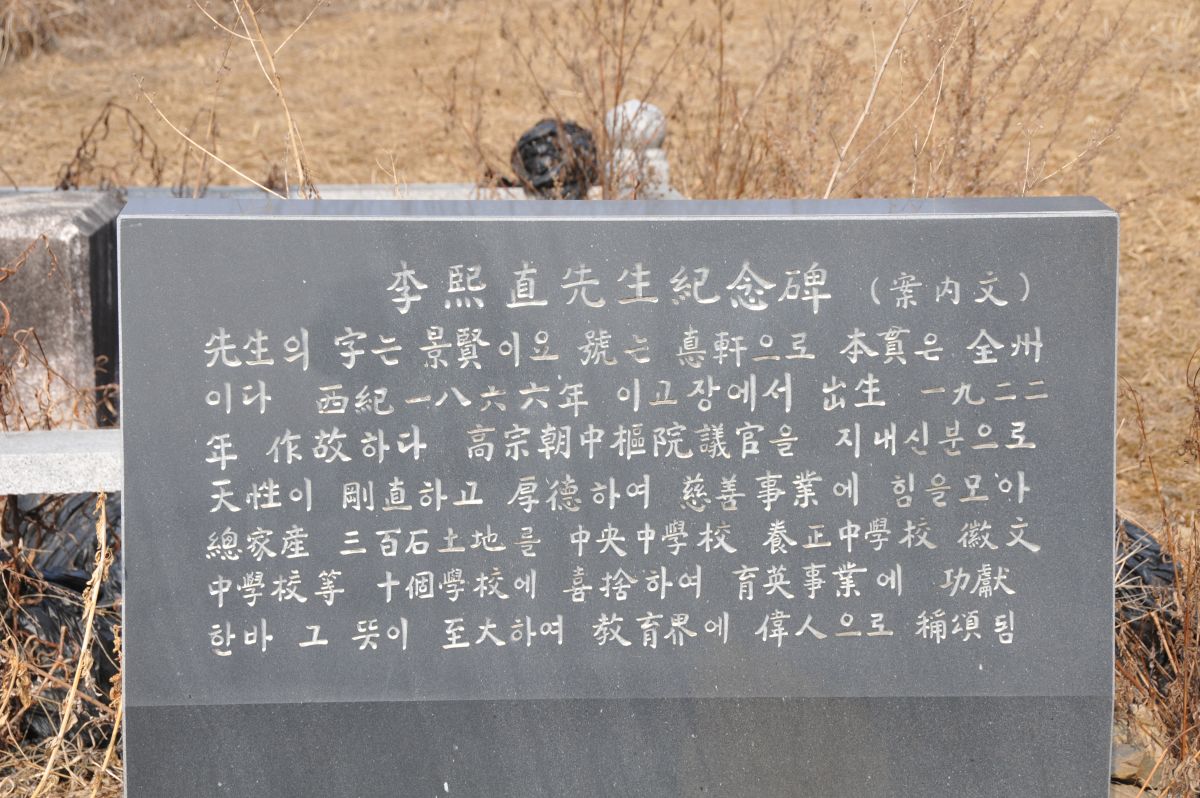 李熙直先生紀念碑 (案內文)
先生의 字는 景賢이요 號는 悳軒으로 本貫은 全州
이다 西紀 一八六六年 이고장에서 出生 一九二二
年 作故하다 高宗朝中樞院議官을 지내신분으로
天性이 剛直하고 厚德하여 慈善事業에 힘을모아
總家産 三百石土地를 中央中學校 養正中學校 徽文
中學校等 十個學校에 喜捨하여 育英事業에 功獻
한바 그 뜻이 至大하여 敎育界에 偉人으로 稱頌됨